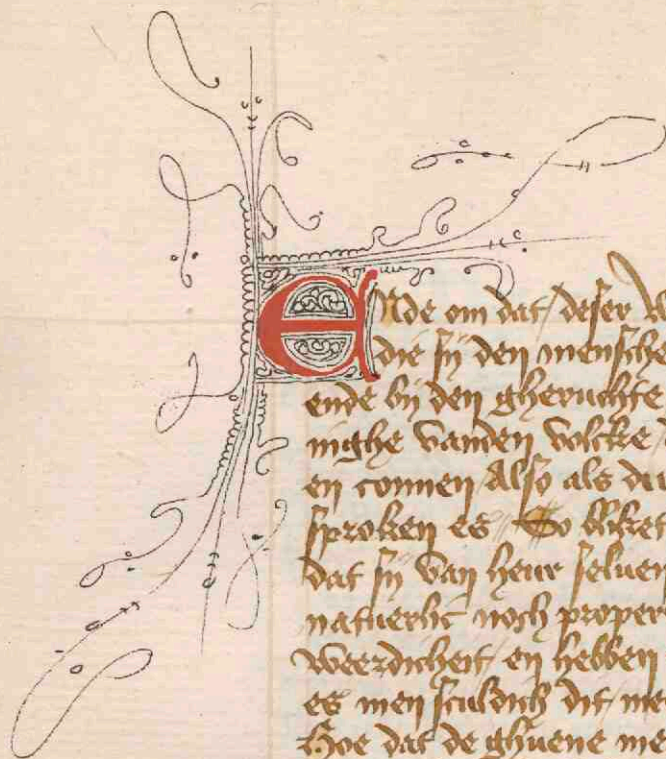 Ende om dat deser
die sij den mensche
ende bij den gheruchte
ninghe vanden volcke
en connen Also als da
sproken es So blijket
dat sij van heur seluen
natuerlic noch proper
weerdicheit en hebben
es men sculdich dit me
Hoe dat de ghuene me